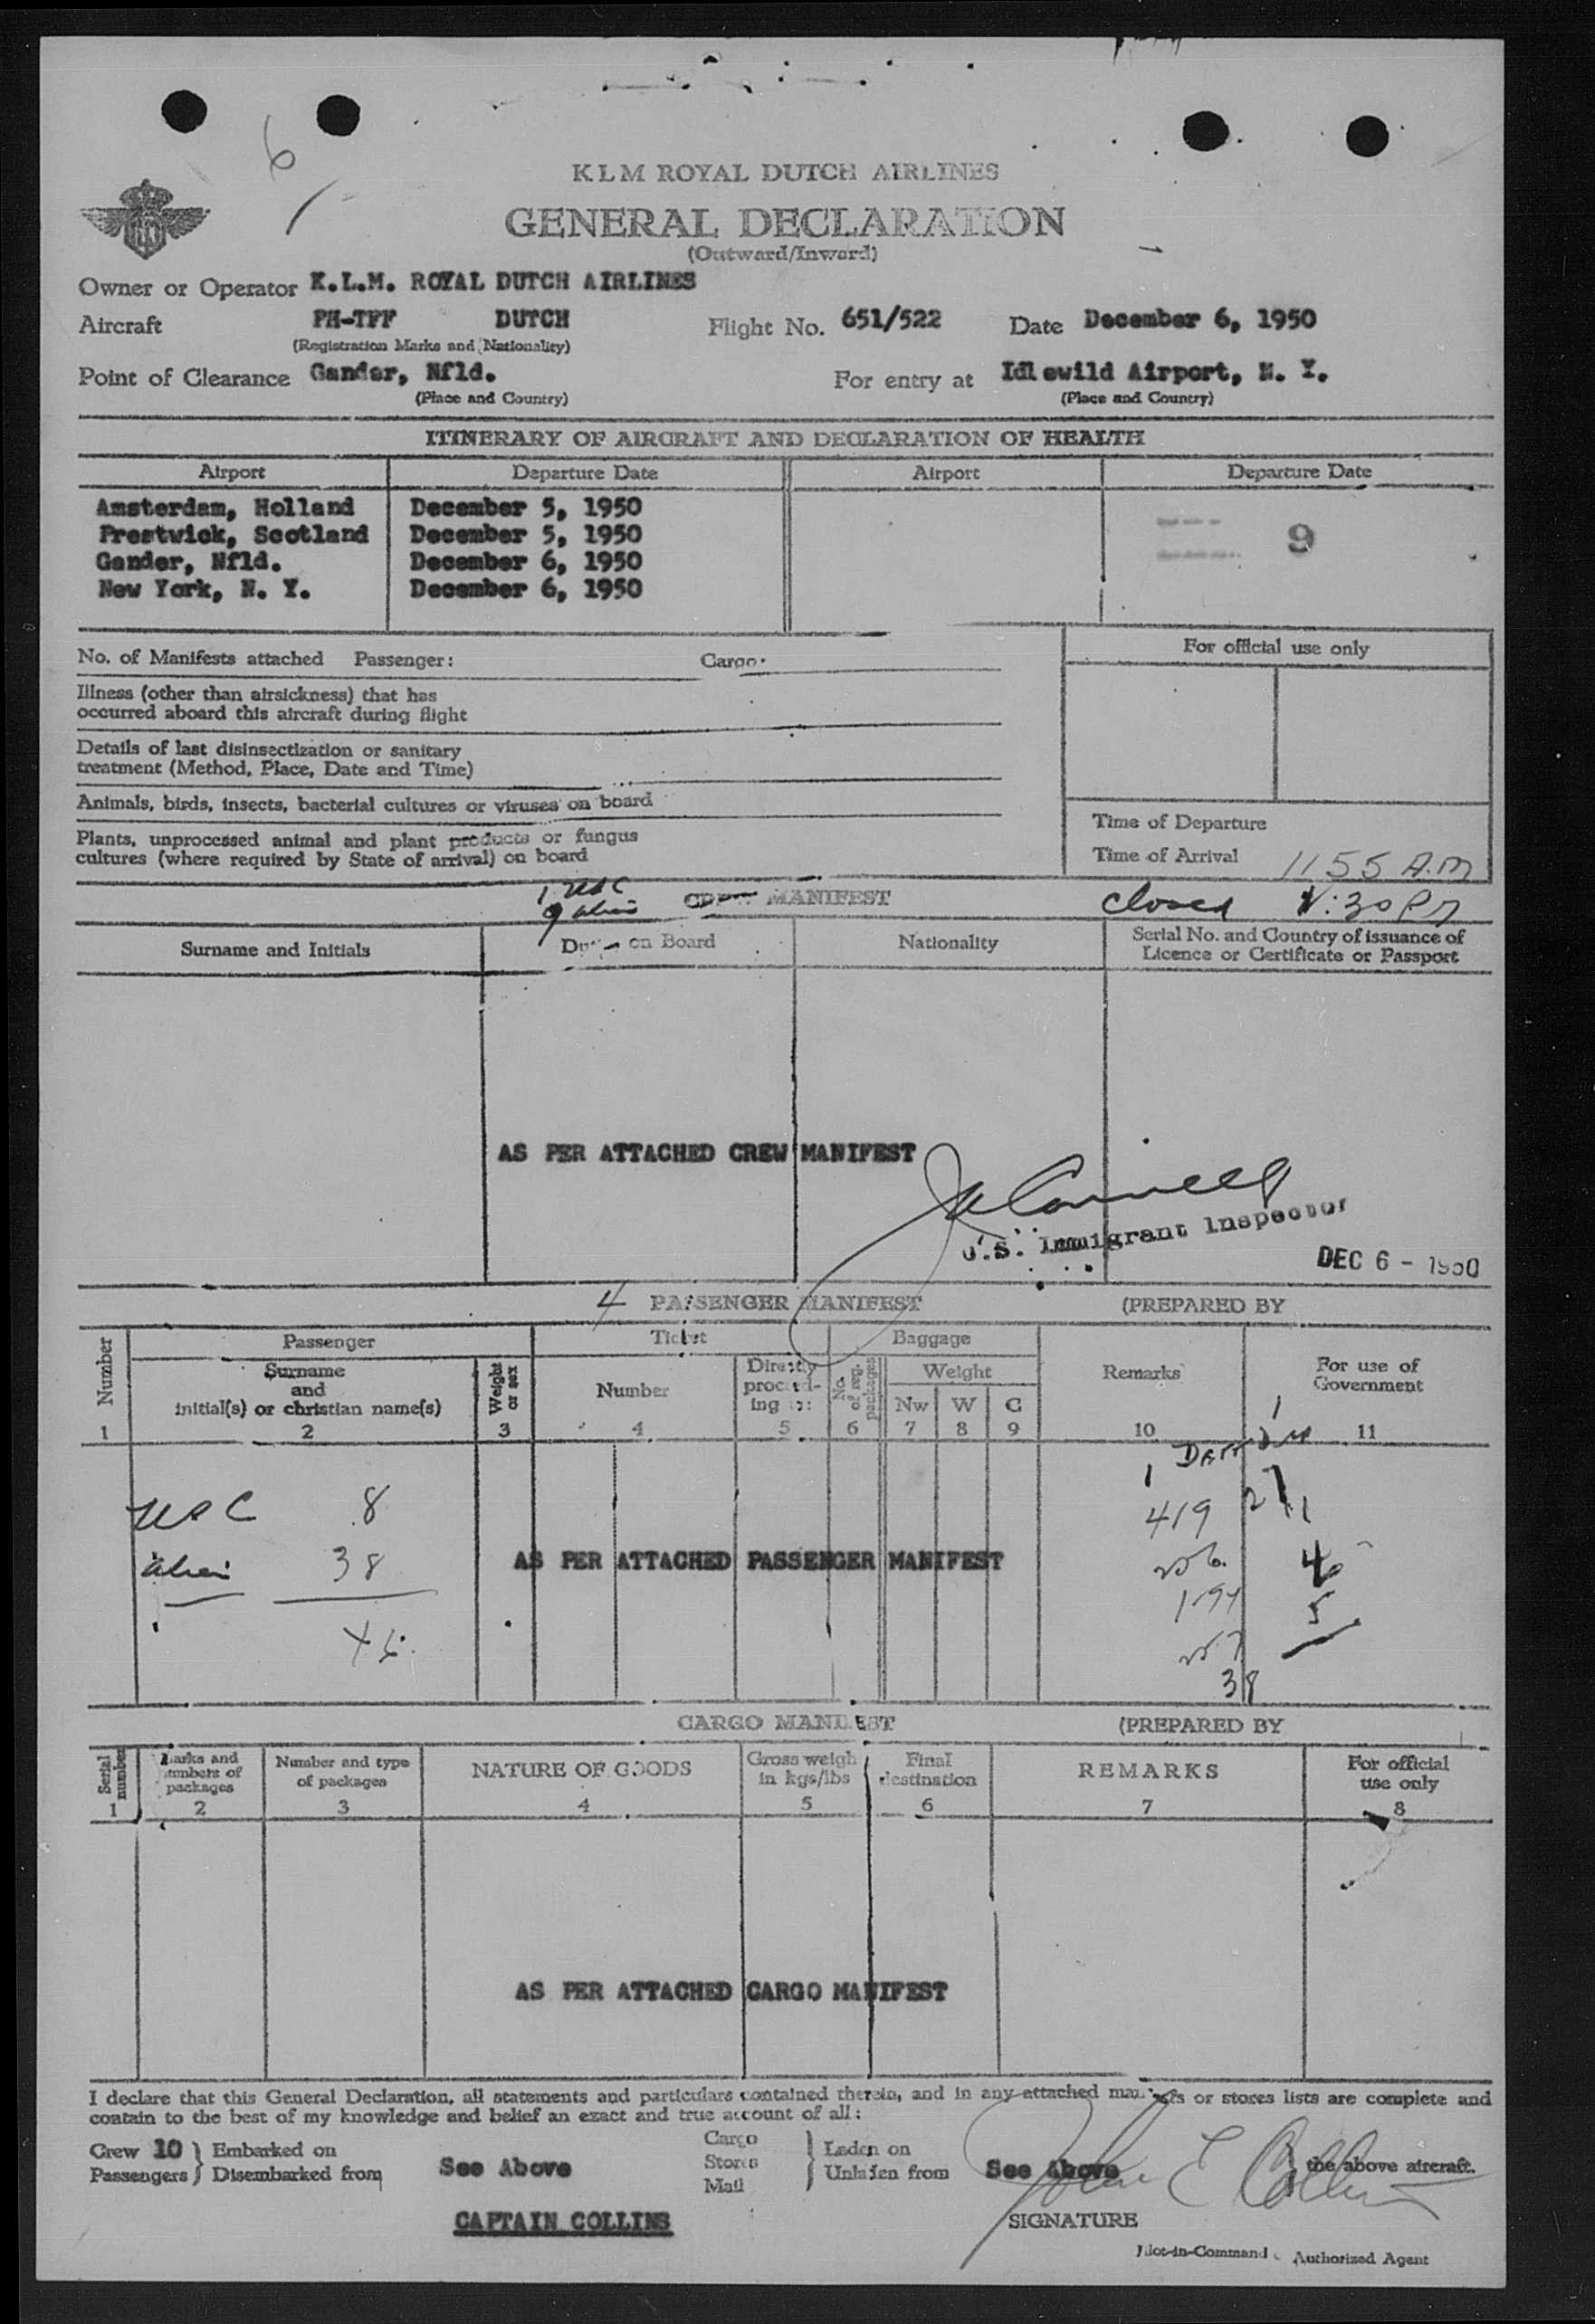 6
KLM ROYAL DUTCH AIRLINES
GENERAL DECLARATION
(Outward/Inward)
Owner or Operator K.L.M. ROYAL DUTCH AIRLINES
Aircraft PH-TFF DUTCH Flight No. 651/522 Date December 6, 1950
(Registration Marks and Nationality)
Point of Clearance Gander, Nfld. For entry at Idlewild Airport, N. Y.
(Place and Country) (Place and Country)
ITINERARY OF AIRCRAFT AND DECLARATION OF HEALTH
Airport Departure Date Airport Departure Date
Amsterdam, Holland December 5, 1950
Prestwick, Scotland December 5, 1950 9
Gander, Nfld. December 6, 1950
New York, N. Y. December 6, 1950
No. of Manifests attached Passenger: Cargo: For official use only
Illness (other than airsickness) that has
occurred aboard this aircraft during flight
Details of last disinsectization or sanitary
treatment (Method, Place, Date and Time)
Animals, birds, insects, bacterial cultures or viruses on board
Plants, unprocessed animal and plant products or fungus
cultures (where required by State of arrival) on board
Time of Departure
Time of Arrival 1155 A.M
1 USC
9 alien CREW MANIFEST closed :30 PM
Surname and Initials Duty on Board Nationality Serial No. and Country of issuance of
Licence or Certificate or Passport
AS PER ATTACHED CREW MANIFEST
U.S. Immigrant Inspector
DEC 6 - 1950
4 PASSENGER MANIFEST (PREPARED BY
Number Passenger Ticket Baggage Remarks For use of
Government
Surname
and
initial(s) or christian name(s) Weight
or sex Number Directly
proceed-
ing to: No.
of reg.
packages Weight
Nw W C
1 2 3 4 5 6 7 8 9 10 11
USC 8
alien 38
46
AS PER ATTACHED PASSENGER MANIFEST
1
419
38
5
CARGO MANIFEST (PREPARED BY
Serial
number Marks and
numbers of
packages Number and type
of packages NATURE OF GOODS Gross weigh
in kgs/lbs Final
destination REMARKS For official
use only
1 2 3 4 5 6 7 8
AS PER ATTACHED CARGO MANIFEST
I declare that this General Declaration, all statements and particulars contained therein, and in any attached manifests or stores lists are complete and
contain to the best of my knowledge and belief an exact and true account of all:
Crew 10 } Embarked on
Passengers } Disembarked from See Above
Cargo
Stores
Mail } Laden on
Unladen from See Above } the above aircraft.
John E Collins
CAPTAIN COLLINS SIGNATURE
Pilot-in-Command Authorized Agent